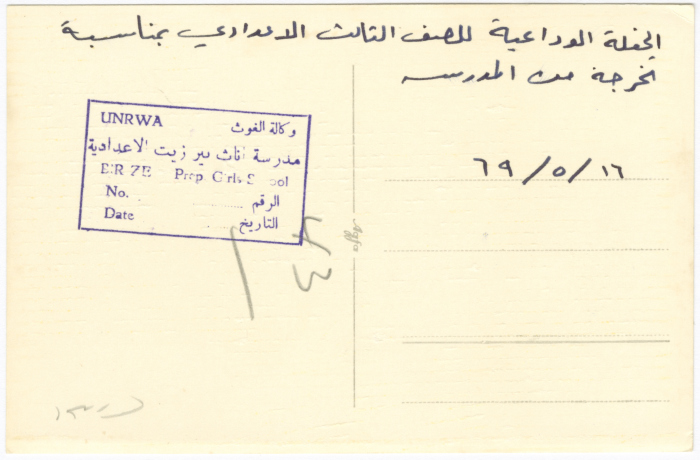 الحفلة الوداعية للصف الثالث الاعدادي بمناسبة
تخرجه من المدرسه
١٦ / ٥ / ٦٩
UNRWA وكالة الغوث
مدرسة اناث بير زيت الاعدادية
Prep Girls
No. الرقم
Date التاريخ
Agfa